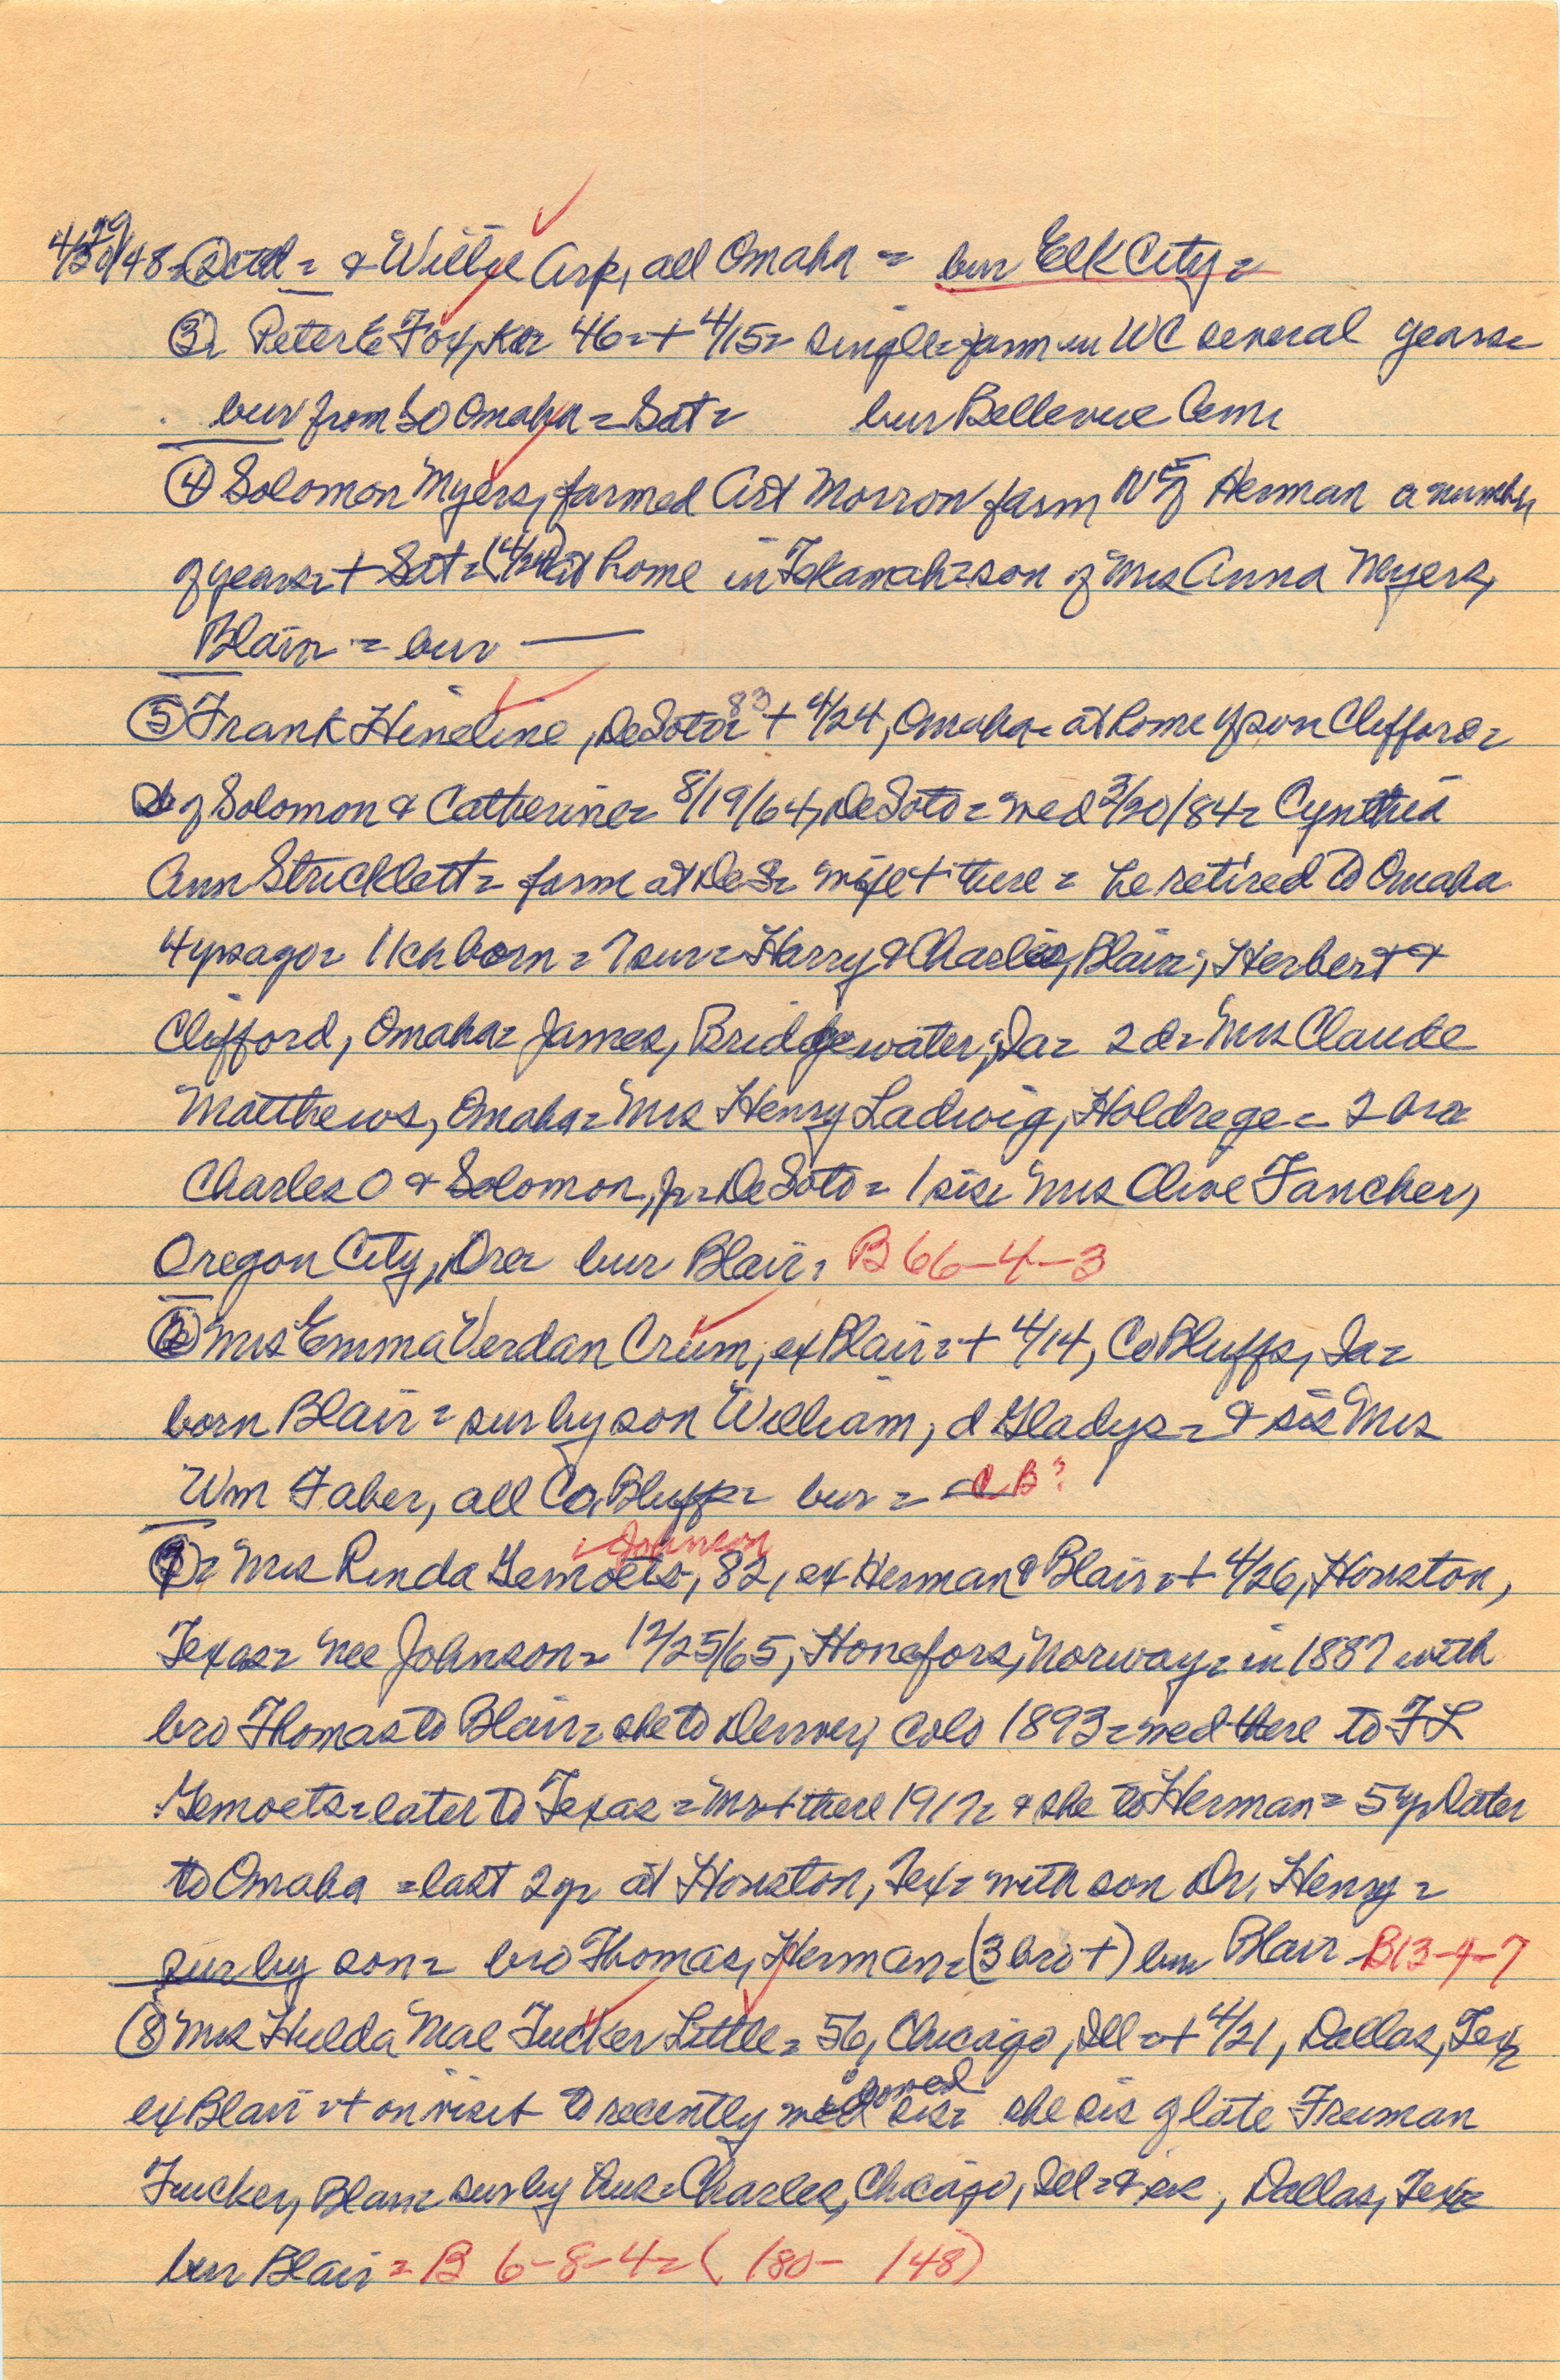 4/29/48 = (2) ctd = & Willie Arp, all Omaha = bur Elk City =
(3) = Peter E Fox, 46 = + 4/15 = single = farm in WC several years =
bur from SO Omaha = Sat = bur Bellevue Cem =
(4) Solomon Myers, farmed Art Morrow farm NE of Herman a number
of years = + Sat = (4/24) at home in Tekamah = son of Mrs Anna Myers,
Blair = bur —
(5) Frank Hineline, DeSoto = 83 + 4/24, Omaha = at home of son Clifford =
of Solomon & Catherine = 8/19/64, DeSoto = wed 3/20/84 = Cynthia
Ann Stricklett = farm at DeS = wife + there = he retired to Omaha
4 yrs ago = 11 ch born = 7 sur = Harry & Charles, Blair; Herbert &
Clifford, Omaha = James, Bridgewater, Ia = 2 d = Mrs Claude
Matthews, Omaha = Mrs Henry Ladwig, Holdrege = 2 bro =
Charles O & Solomon, Jr = DeSoto = 1 sis = Mrs Olive Fancher,
Oregon City, Ore = bur Blair = B 66-4-3
(6) Mrs Emma Verdan Crum, ex Blair = + 4/14, Co Bluffs, Ia =
born Blair = sur by son William, d Gladys = & sis Mrs
Wm Faber, all Co Bluffs = bur = C B?
Johnson
(7) = Mrs Rinda Gemoets, 82, ex Herman & Blair = + 4/26, Houston,
Texas = nee Johnson = 12/25/65, Honefors, Norway = in 1887 with
bro Thomas to Blair = she to Denver, Colo 1893 = wed there to F L
Gemoets = later to Texas = Mr + there 1917 = & she to Herman = 5 yr later
to Omaha = last 2 yr at Houston, Tex = with son Dr, Henry =
sur by son = bro Thomas, Herman = (3 bro +) bur Blair - B13-4-7
(8) Mrs Hulda Mae Tucker Little = 56, Chicago, Ill = + 4/21, Dallas, Tex =
ex Blair = + on visit to recently widowed sis = she sis of late Freeman
Tucker, Blair = sur by hus = Charles, Chicago, Ill = & sis, Dallas, Tex =
bur Blair = B 6-8-4 = (180- 148)